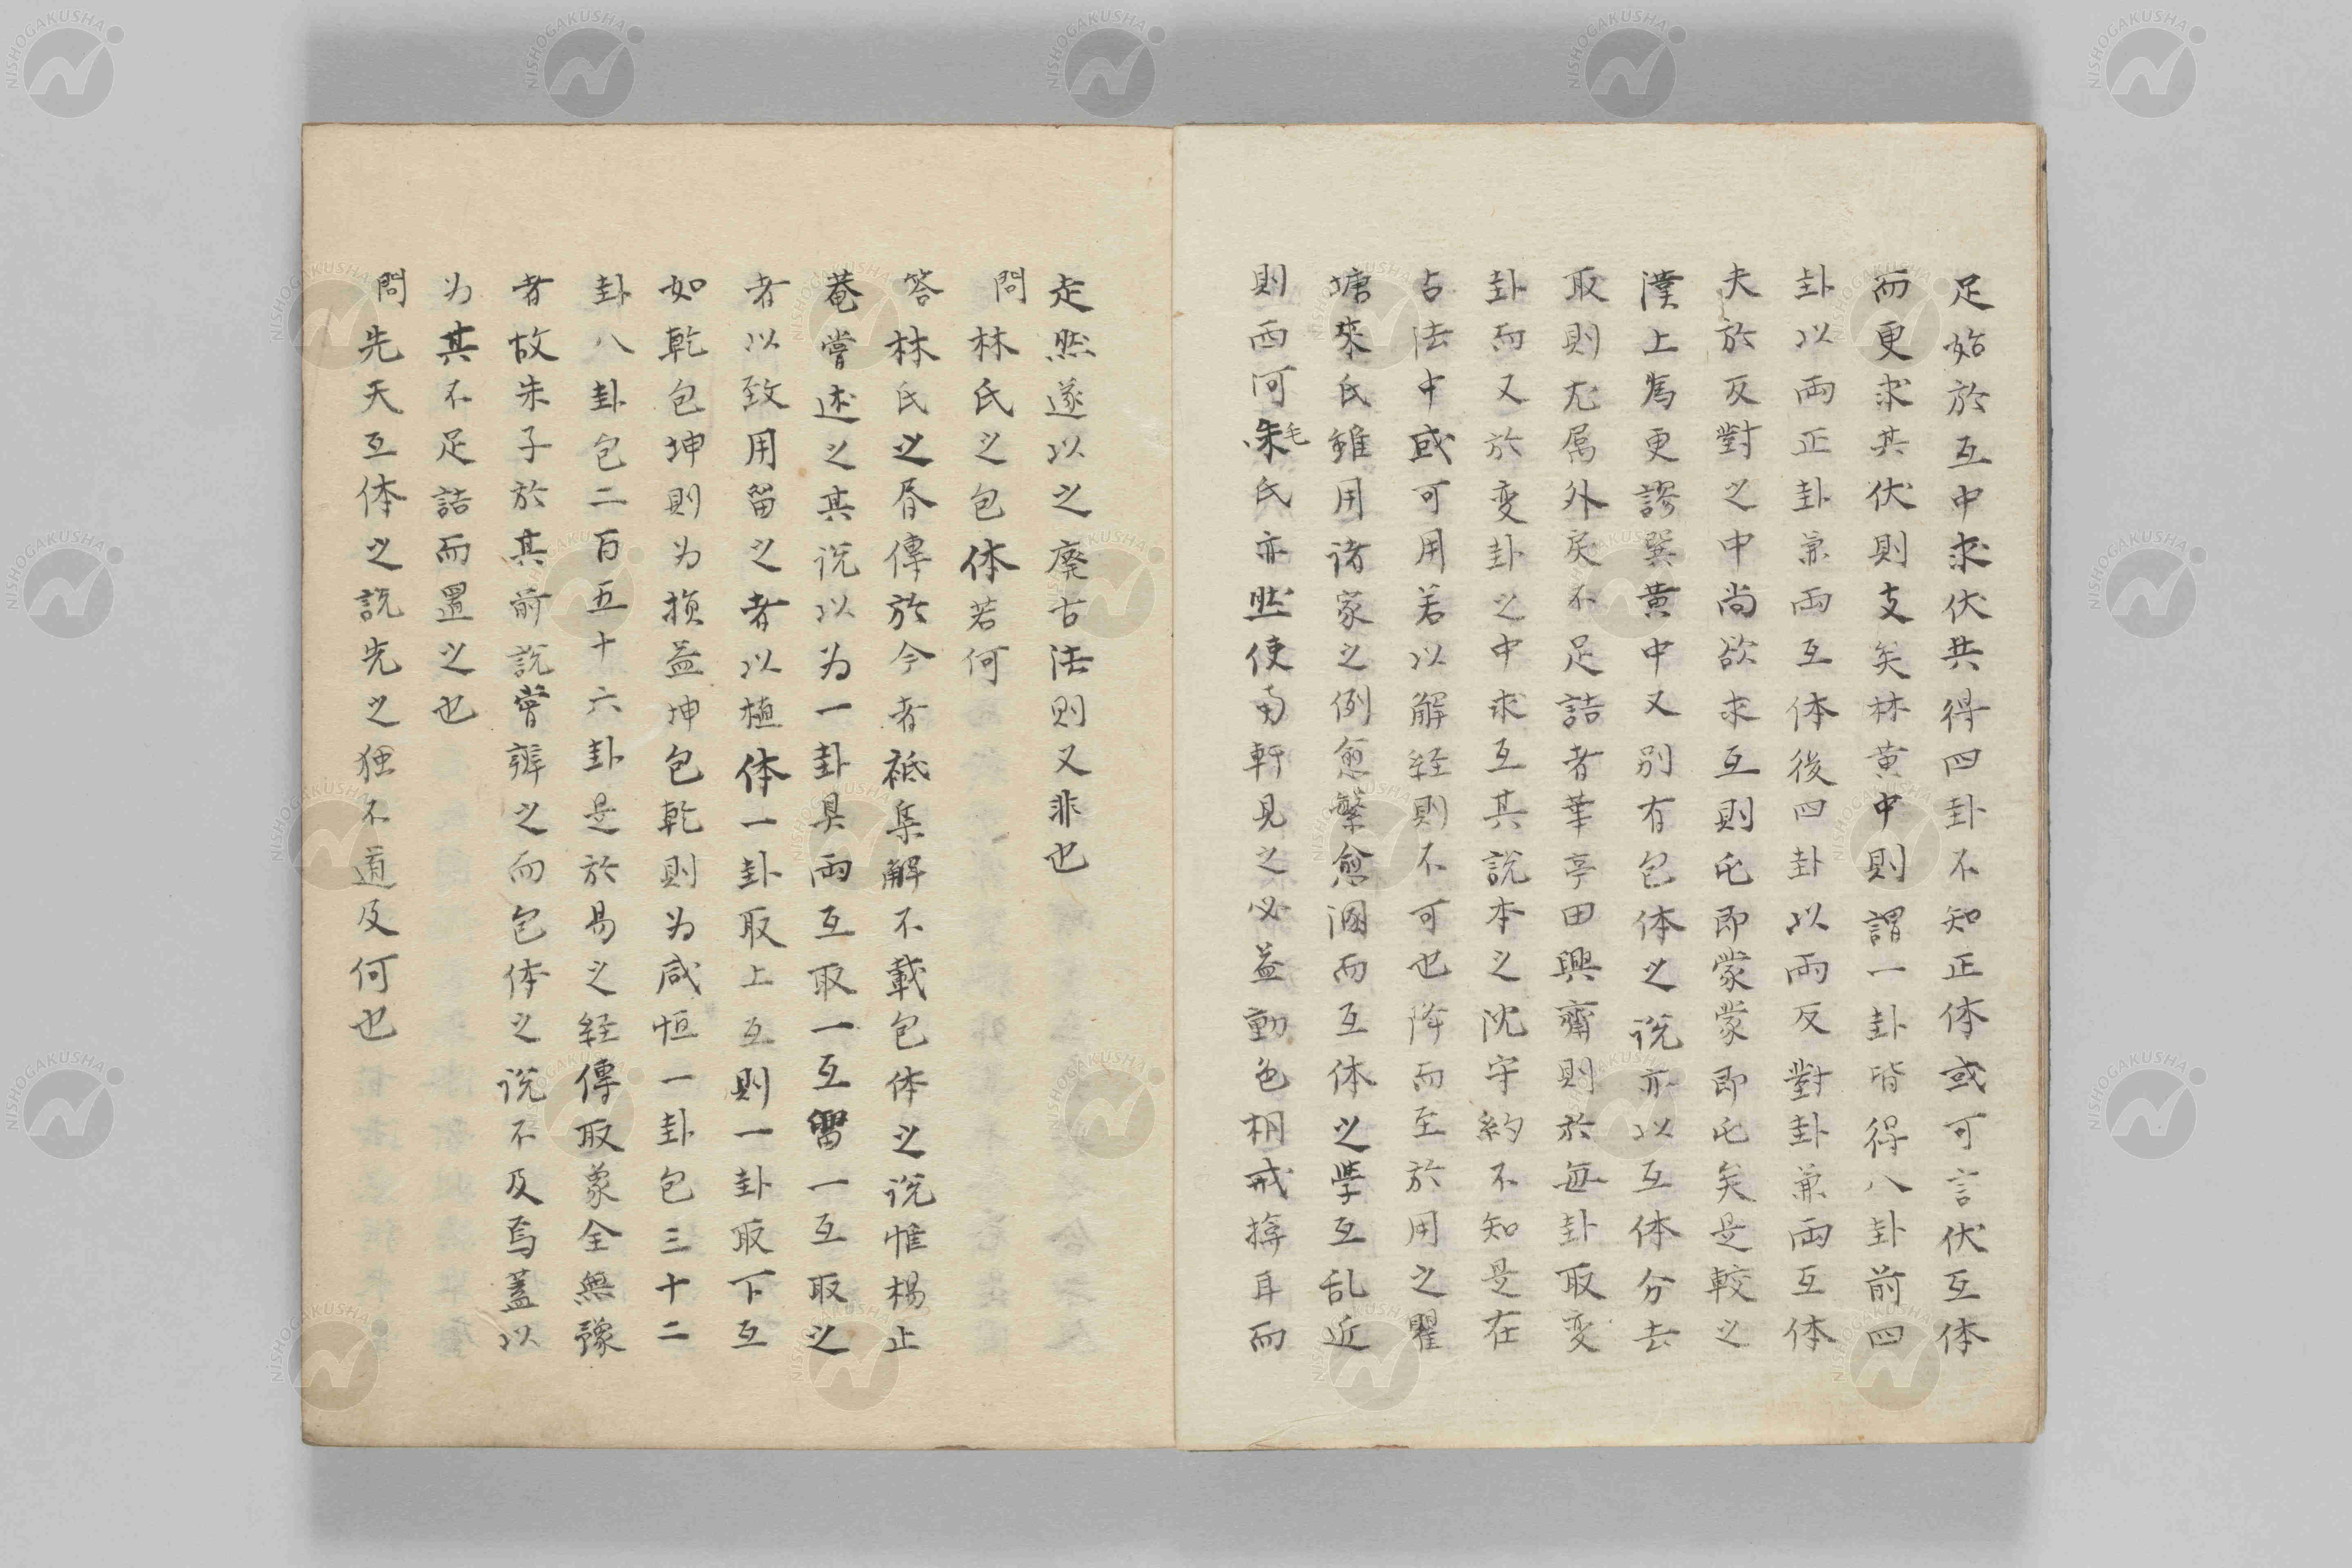 足始於互中求伏共得四卦不知正体或可言伏互体
而更求其伏則支矣林黄中則謂一卦皆得八卦前四
卦以両正卦兼両互体後四卦以両反對卦兼両互体
夫於反對之中尚欲求互則屯即蒙蒙即屯矣是較之
漢上為更謬巽黄中又別有包体之说亦以互体分去
取則尤属外戾不足詰者華亭田興齋則於毎卦取变
卦而又於变卦之中求互其說本之沈守約不知是在
占法中或可用若以解経則不可也降而至於用之瞿
塘來氏雖用诸家之例愈繁愈溷而互体之學互乱近
則西河朱毛氏亦然使南軒見之必益動色相戒掩耳而
走然遂以之廢古法則又非也
問林氏之包体若何
答林氏之昏傳於今者祗集解不載包体之说惟楊止
菴嘗述之其说以为一卦具両互取一互留一互取之
者以致用留之者以植体一卦取上互則一卦取下互
如乾包坤則为损益坤包乾則为咸恒一卦包三十二
卦八卦包二百五十六卦是於易之経傳取象全無豫
者故朱子於其前説嘗辨之而包体之说不及焉蓋以
为其不足詰而置之也
問先天互体之説先之独不道及何也
NISHOGAKUSHA